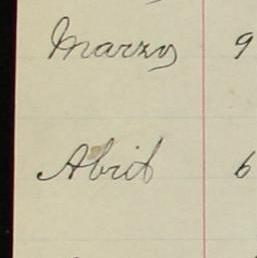 Marzo 9
Abril 6